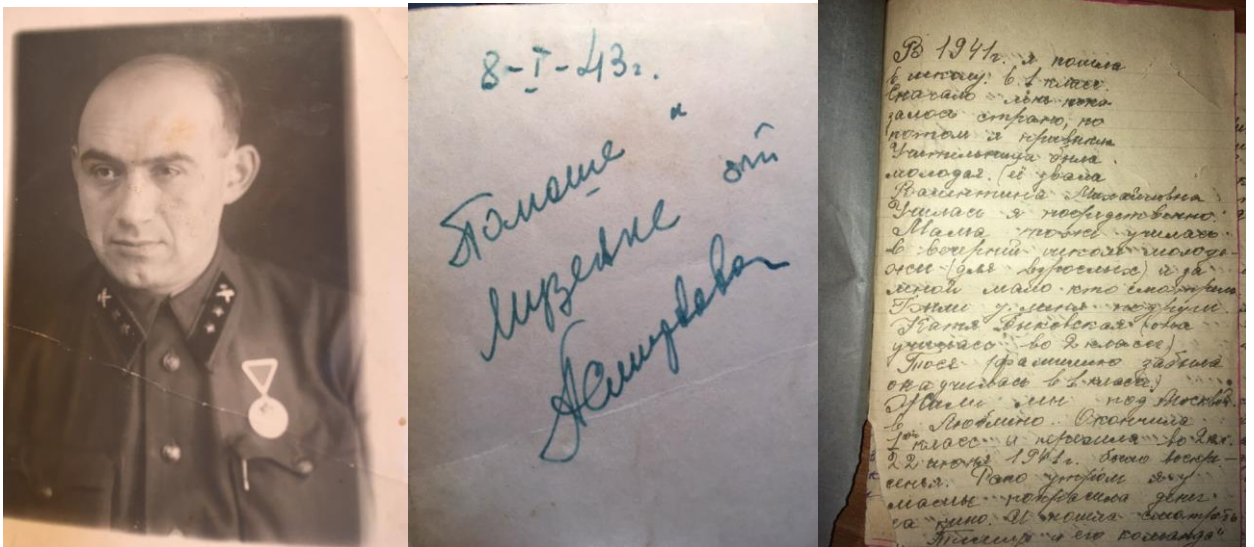 8-I-43г.
Тамаше и
Музеньке от
В 1941г. я пошла
в школу. в 1 класс.
Сначало мне пока
залось страно, но
потом я привыкла
Учительница была
молодая. (её звала
Валентина Михайловна
Училась я посредственно.
Мама тоже училась
в вечерней школе молодё
жи (для взрослых) и за
мной мало кто смотрел.
Были у меня подруги.
Катя Быковская (она
училась во 2 классе)
Тося (фамилию забыла
она училась в 1 классе)
Жили мы под Москвой.
в Люблино. Окончила
1ый класс и перешла во 2 кл.
22 июня 1941г. было воскре-
сенье. Рано утром я у
мамы попросила денег
на кино. И пошла смотреть
"Тимур и его команда"